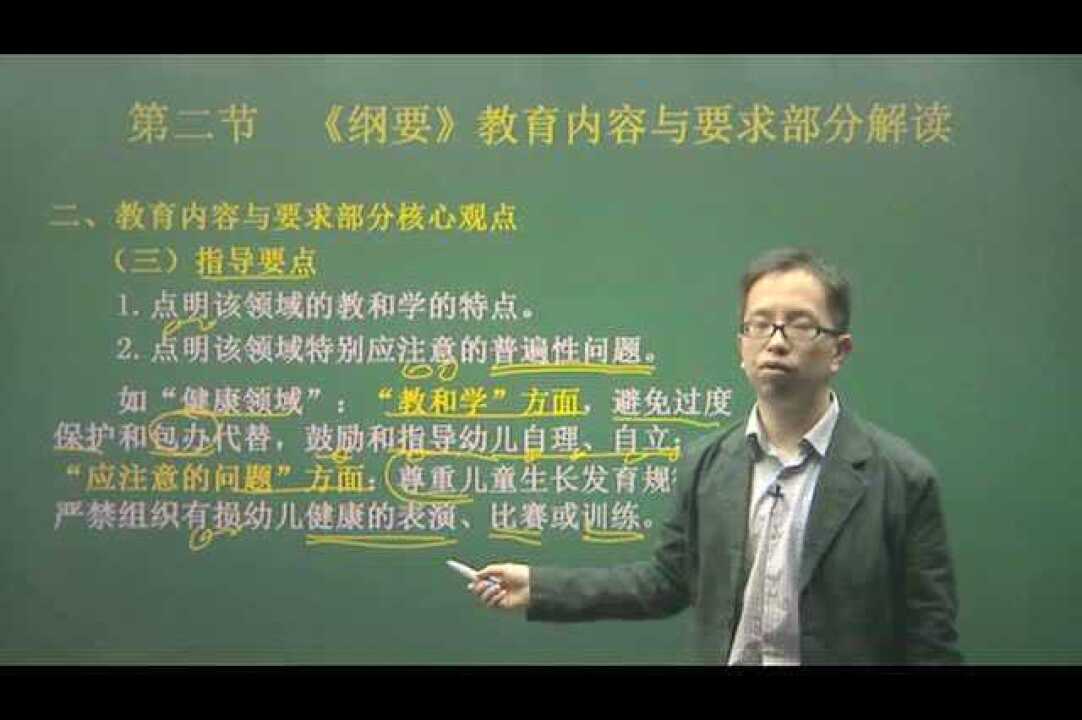 第二节 《纲要》教育内容与要求部分解读
二、教育内容与要求部分核心观点
（三）指导要点
1.点明该领域的教和学的特点。
2.点明该领域特别应注意的普遍性问题。
如“健康领域”：“教和学”方面，避免过度
保护和包办代替，鼓励和指导幼儿自理、自立；
“应注意的问题”方面：尊重儿童生长发育规
严禁组织有损幼儿健康的表演、比赛或训练。